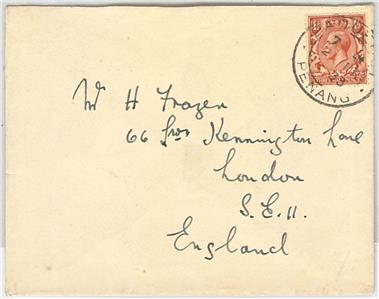 Mr H Frazer
66 Kennington Lane
London
S.E.11.
England
PENANG